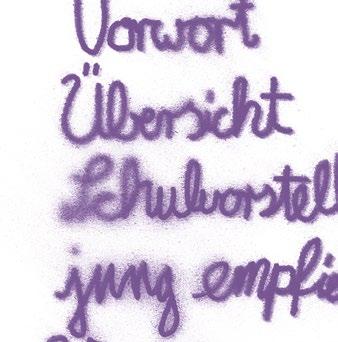 Vorwort
Übersicht
Schulvorstell
jung empfie